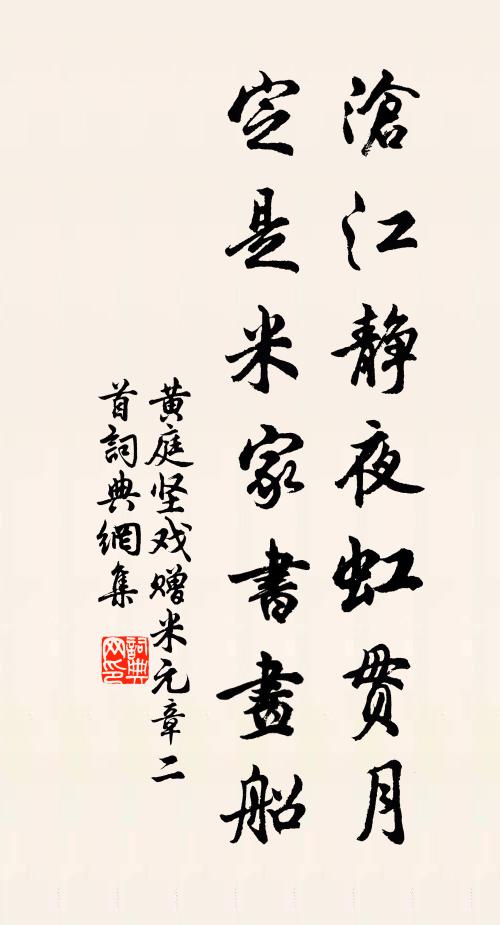 滄江静夜虹貫月
定是米家書畫船
黄庭坚戏赠米元章二
首詞典網集
詞典网印